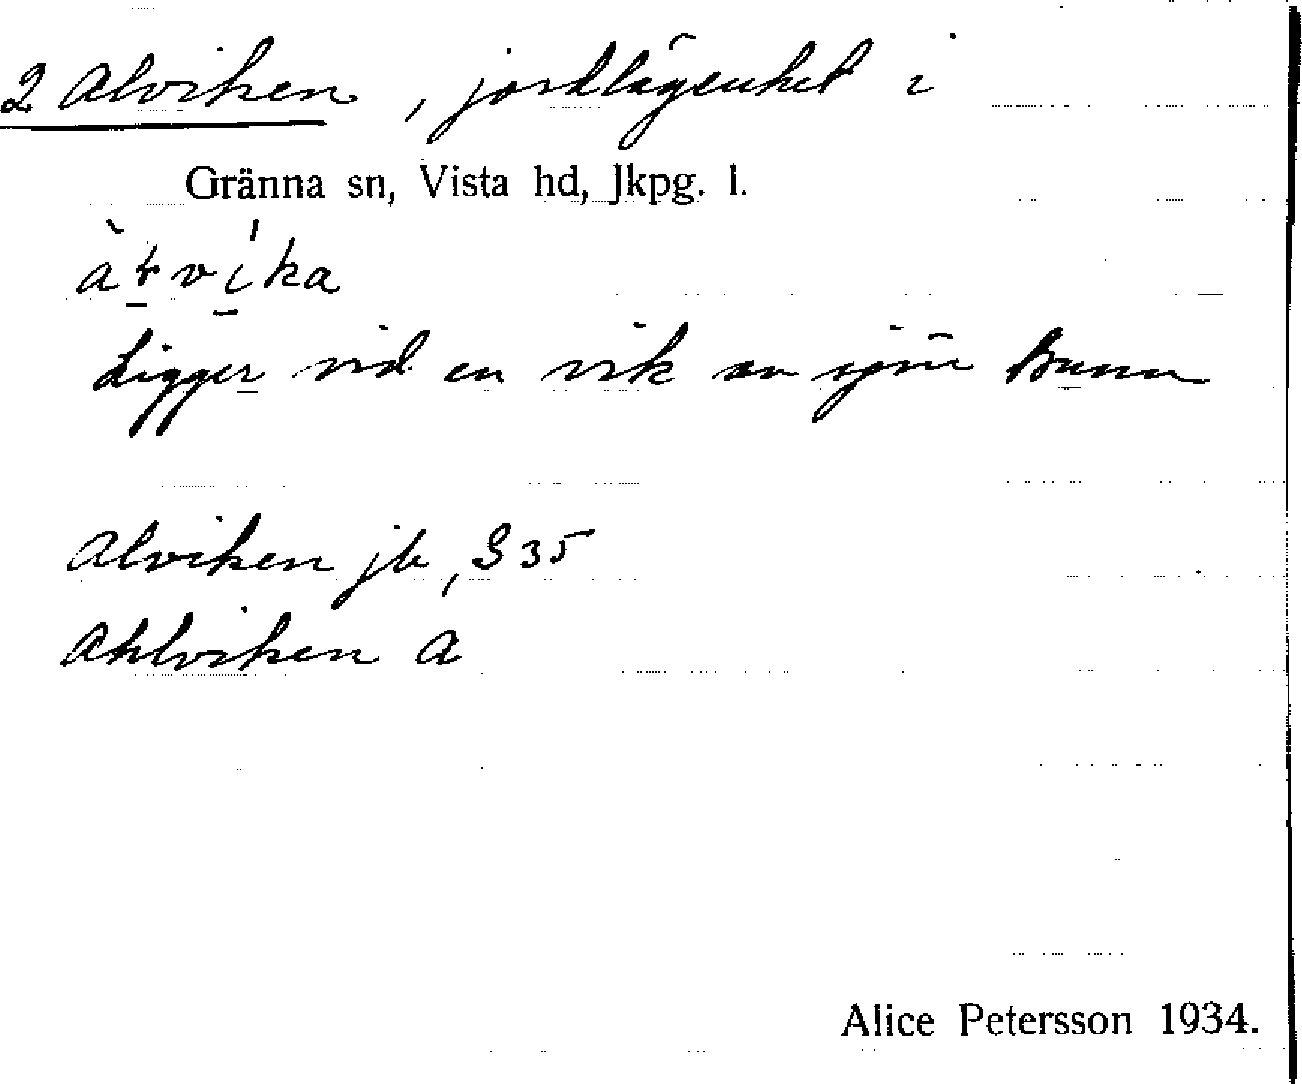 2 Alviken, jordlägenhet i
Gränna sn, Vista hd, Jkpg. l.
Ligger vid en vik av sjön Bunn
Alviken jb, S 35
Ahlviken A
Alice Petersson 1934.